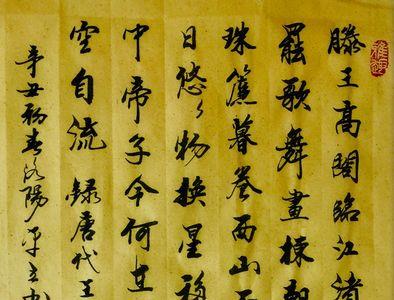 滕王高閣臨江渚
罷歌舞畫棟朝
珠簾暮卷西山
日悠々物換星移
中帝子今何在
空自流 錄唐代王
辛丑初春洛陽